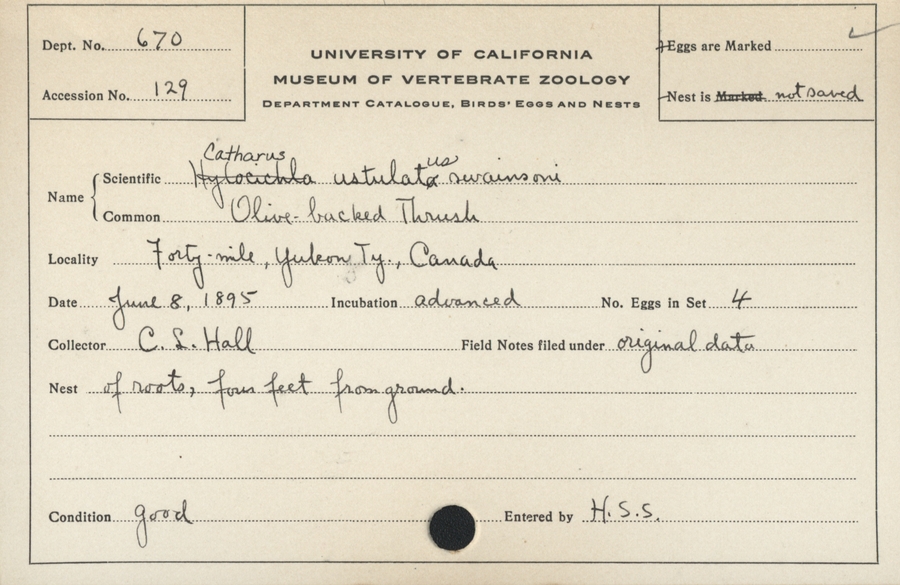 Dept. No. 670
Accession No. 129
UNIVERSITY OF CALIFORNIA
MUSEUM OF VERTEBRATE ZOOLOGY
DEPARTMENT CATALOGUE, BIRDS' EGGS AND NESTS
Eggs are Marked
Nest is Marked not saved
Catharus us
Scientific Hylocichla ustulata swainsoni
Name
Common Olive-backed Thrush
Locality Forty-mile, Yukon Ty., Canada
Date June 8, 1895 Incubation advanced No. Eggs in Set 4
Collector C. L. Hall Field Notes filed under original data
Nest of roots, four feet from ground.
Condition good Entered by H.S.S.